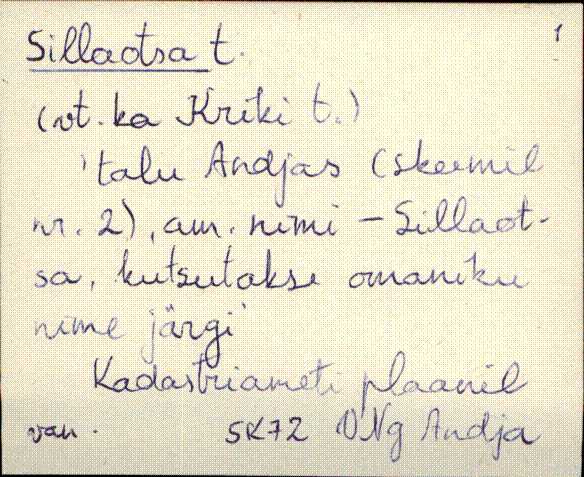 Sillaotsa t. 1
(vt. ka Kriki t.)
'talu Andjas (skeemil
nr. 2), am. nimi - Sillaot-
sa, kutsutakse omaniku
nime järgi'
Kadastriameti plaanil
van. SK72 VNg Andja